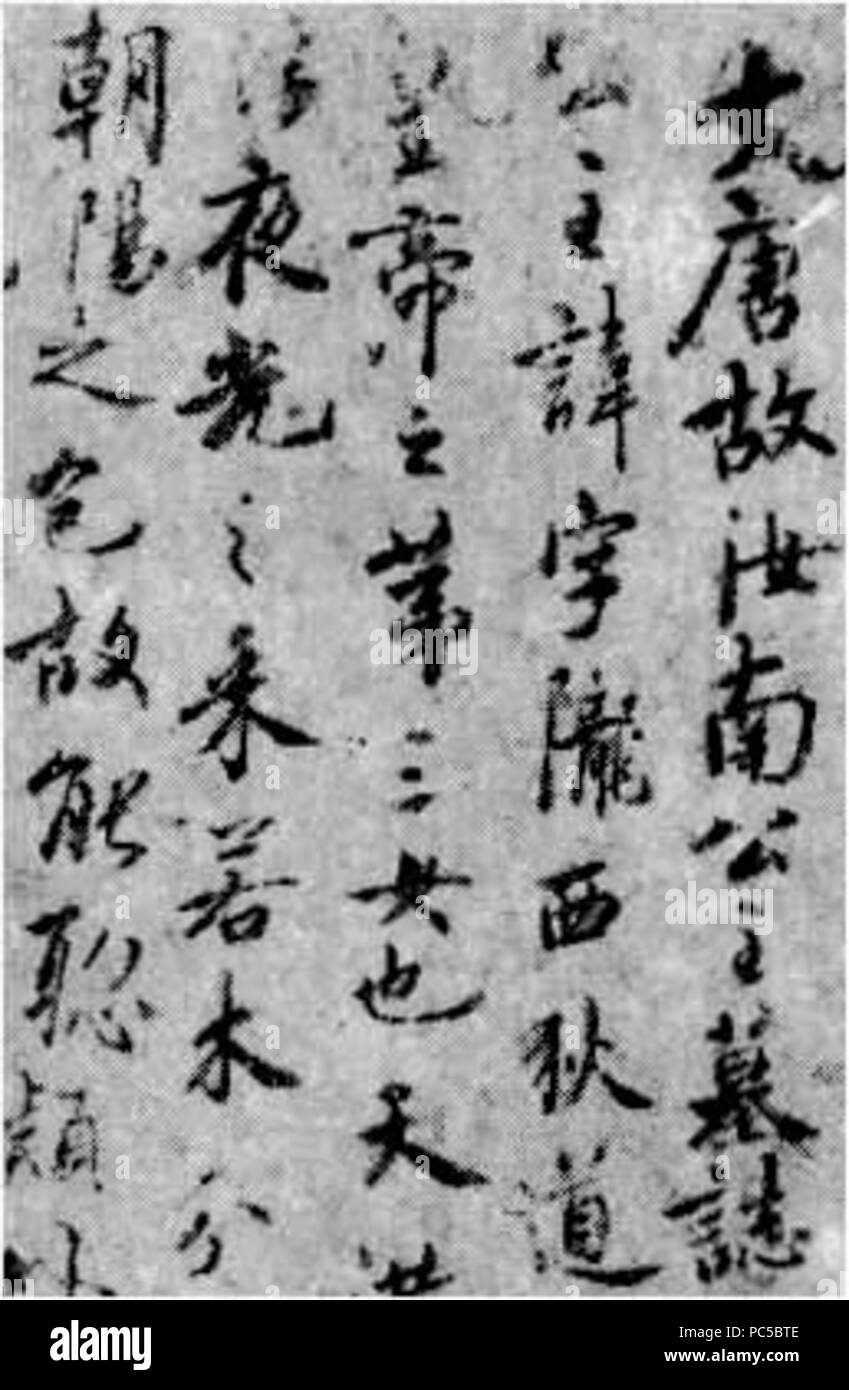 大唐故汝南公主墓誌
公主諱字隴西狄道
皇帝之第三女也天
浮夜光之采若木分
朝陽之色故能聰穎外
alamy
PC5BTE
www.alamy.com